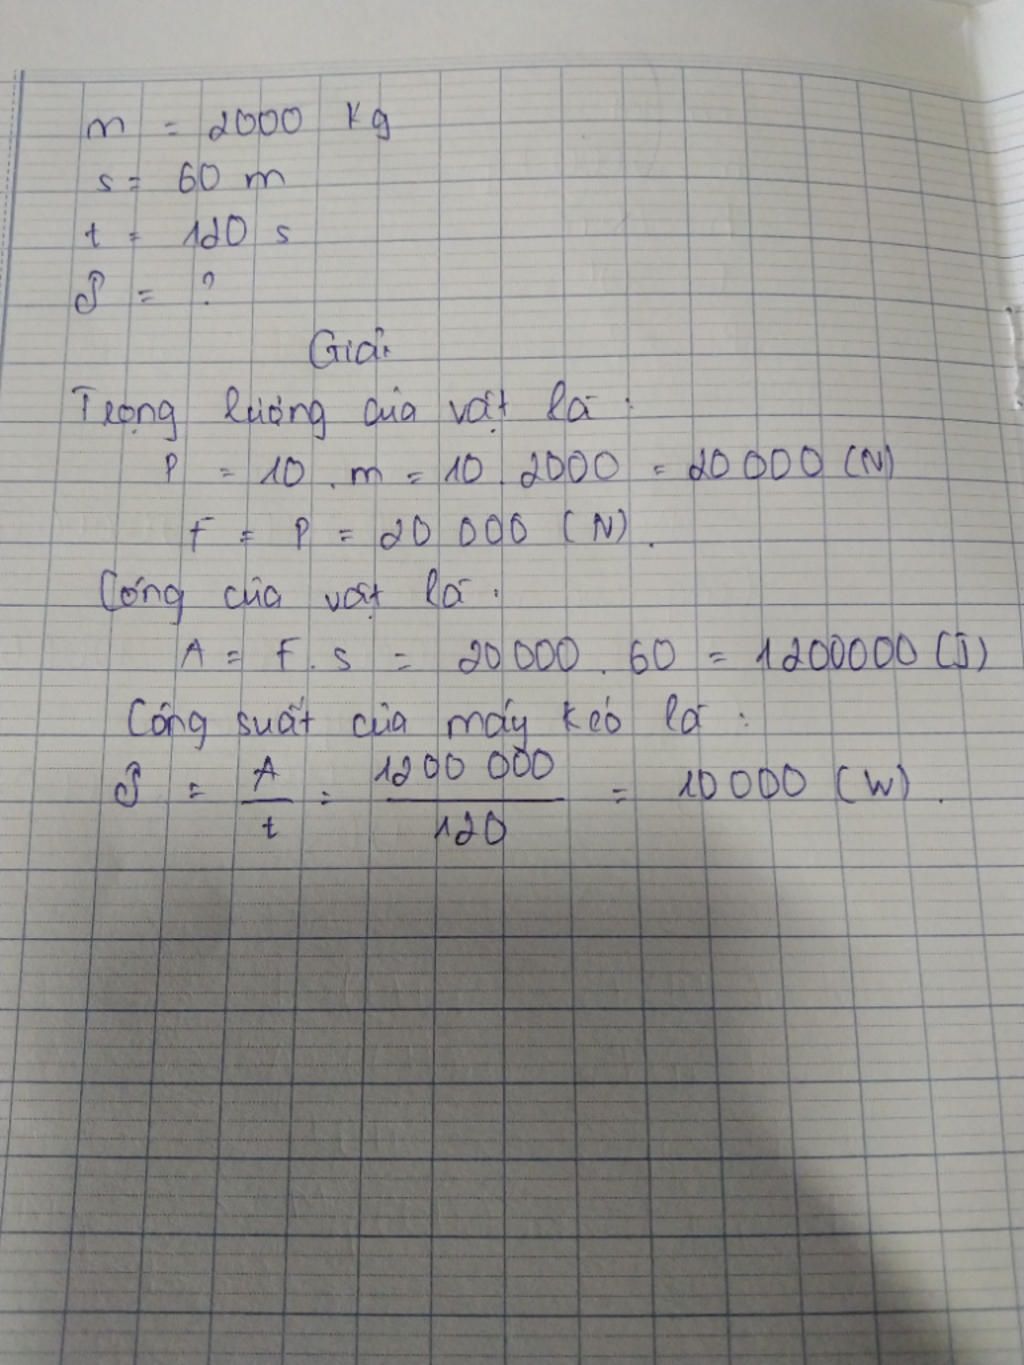 m = 2000 Kg
s = 60 m
t = 120 s
P = ?
Giải
Trọng lượng của vật là :
P = 10 . m = 10 . 2000 = 20 000 (N)
F = P = 20 000 (N).
Công của vật là :
A = F . s = 20 000 . 60 = 1200000 (J)
Công suất của máy kéo là :
P = A/t = 1200 000/120 = 10 000 (W).